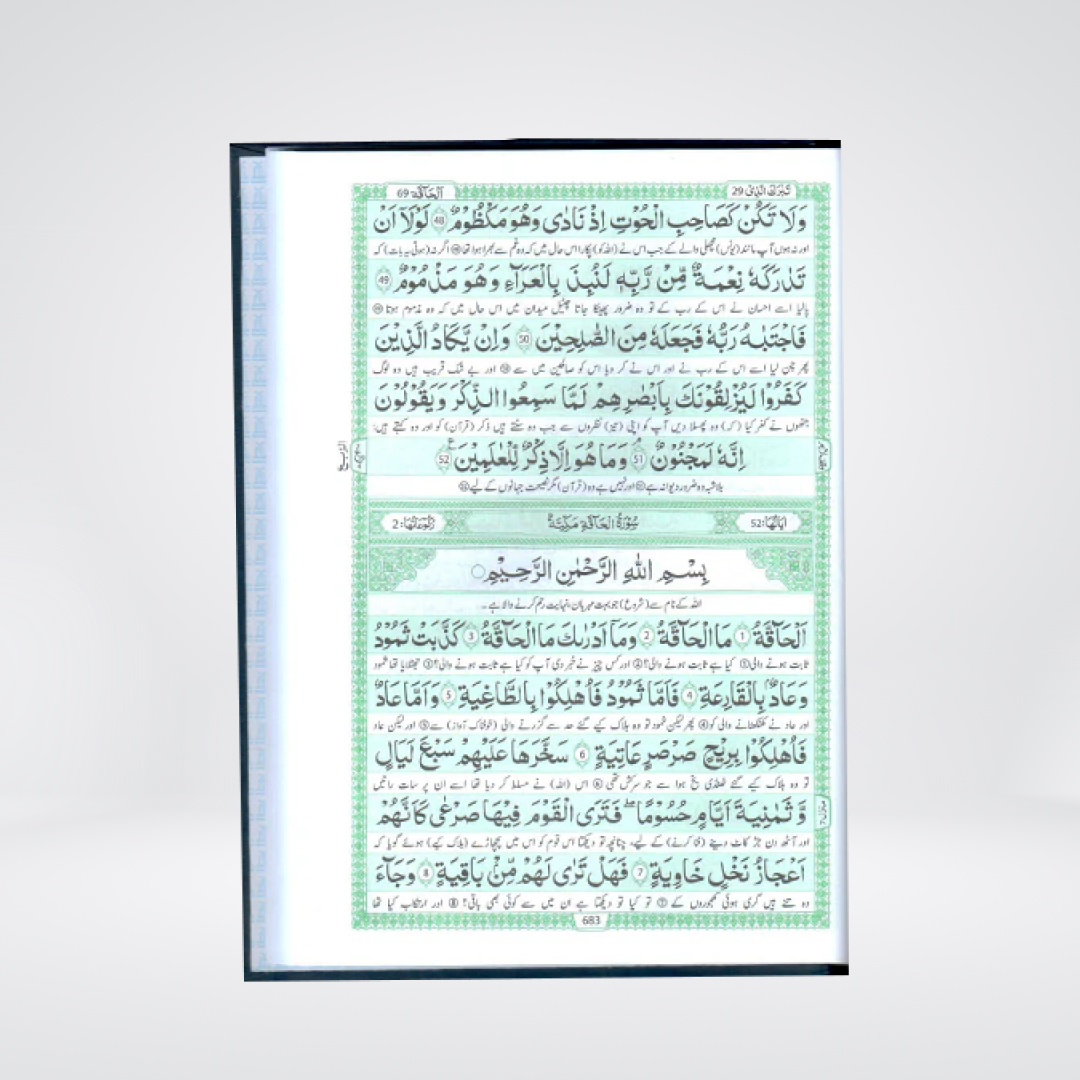 تَبٰرَكَ الَّذِیْ 29
اَلْحَآقَّة 69
وَلَا تَكُنْ كَصَاحِبِ الْحُوْتِ اِذْ نَادٰی وَهُوَ مَكْظُوْمٌ 48 لَوْلَاۤ اَنْ
اور نہ ہوں آپ مانند (یونس) مچھلی والے کے جب اس نے (اللہ کو) پکارا اس حال میں کہ وہ غم سے بھرا ہوا تھا ۴۸ اگر نہ (ہوتی یہ بات) کہ
تَدٰرَكَهٗ نِعْمَةٌ مِّنْ رَّبِّهٖ لَنُبِذَ بِالْعَرَآءِ وَهُوَ مَذْمُوْمٌ 49
پالیا اسے احسان نے اس کے رب کے تو وہ ضرور پھینکا جاتا چٹیل میدان میں اس حال میں کہ وہ مذموم ہوتا ۴۹
فَاجْتَبٰىهُ رَبُّهٗ فَجَعَلَهٗ مِنَ الصّٰلِحِیْنَ 50 وَاِنْ یَّكَادُ الَّذِیْنَ
پھر چن لیا اسے اس کے رب نے اور اس نے کر دیا اس کو صالحین میں سے ۵۰ اور بے شک قریب ہیں وہ لوگ
كَفَرُوْا لَیُزْلِقُوْنَكَ بِاَبْصٰرِهِمْ لَمَّا سَمِعُوا الذِّكْرَ وَیَقُوْلُوْنَ
جنھوں نے کفر کیا (کہ) وہ پھسلا دیں آپ کو اپنی (تیز) نظروں سے جب وہ سنتے ہیں ذکر (قرآن) کو اور وہ کہتے ہیں:
اِنَّهٗ لَمَجْنُوْنٌ 51 وَمَا هُوَ اِلَّا ذِكْرٌ لِّلْعٰلَمِیْنَ 52
بلاشبہ وہ ضرور دیوانہ ہے ۵۱ اور نہیں ہے وہ (قرآن) مگر نصیحت جہانوں کے لیے ۵۲
اٰیَاتُهَا: 52
سُوْرَةُ الْحَآقَّةِ مَكِّیَّةٌ
رُكُوْعَاتُهَا: 2
بِسْمِ اللّٰهِ الرَّحْمٰنِ الرَّحِیْمِ
اللہ کے نام سے (شروع) جو بہت مہربان، نہایت رحم کرنے والا ہے ۔
اَلْحَآقَّةُ 1 مَا الْحَآقَّةُ 2 وَمَاۤ اَدْرٰىكَ مَا الْحَآقَّةُ 3 كَذَّبَتْ ثَمُوْدُ
ثابت ہونے والی ۱ کیا ہے ثابت ہونے والی؟ ۲ اور کس چیز نے خبر دی آپ کو کیا ہے ثابت ہونے والی؟ ۳ جھٹلایا تھا ثمود
وَعَادٌۢ بِالْقَارِعَةِ 4 فَاَمَّا ثَمُوْدُ فَاُهْلِكُوْا بِالطَّاغِیَةِ 5 وَاَمَّا عَادٌ
اور عاد نے کھٹکھٹانے والی کو ۴ پھر لیکن ثمود تو وہ ہلاک کیے گئے حد سے گزرنے والی (خوفناک آواز) سے ۵ اور لیکن عاد
فَاُهْلِكُوْا بِرِیْحٍ صَرْصَرٍ عَاتِیَةٍ 6 سَخَّرَهَا عَلَیْهِمْ سَبْعَ لَیَالٍ
تو وہ ہلاک کیے گئے ٹھنڈی یخ ہوا سے جو سرکش تھی ۶ اس (اللہ) نے مسلط کر دیا تھا اسے ان پر سات راتیں
وَّثَمٰنِیَةَ اَیَّامٍ حُسُوْمًا ۖ فَتَرَی الْقَوْمَ فِیْهَا صَرْعٰی كَاَنَّهُمْ
اور آٹھ دن جڑ کاٹ دینے (فنا کرنے) کے لیے، چنانچہ تو دیکھتا اس قوم کو اس میں پچھاڑے (ہلاک کیے) ہوئے گویا کہ
اَعْجَازُ نَخْلٍ خَاوِیَةٍ 7 فَهَلْ تَرٰی لَهُمْ مِّنْۢ بَاقِیَةٍ 8 وَجَآءَ
وہ تنے ہیں گری ہوئی کھجوروں کے ۷ تو کیا تو دیکھتا ہے ان میں سے کوئی بھی باقی؟ ۸ اور ارتکاب کیا تھا
683